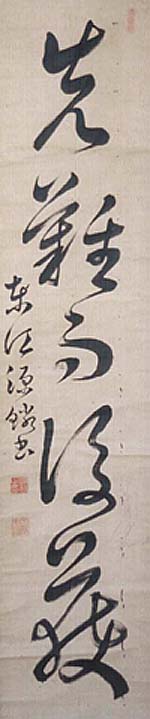 先難而後獲
東江源鱗書